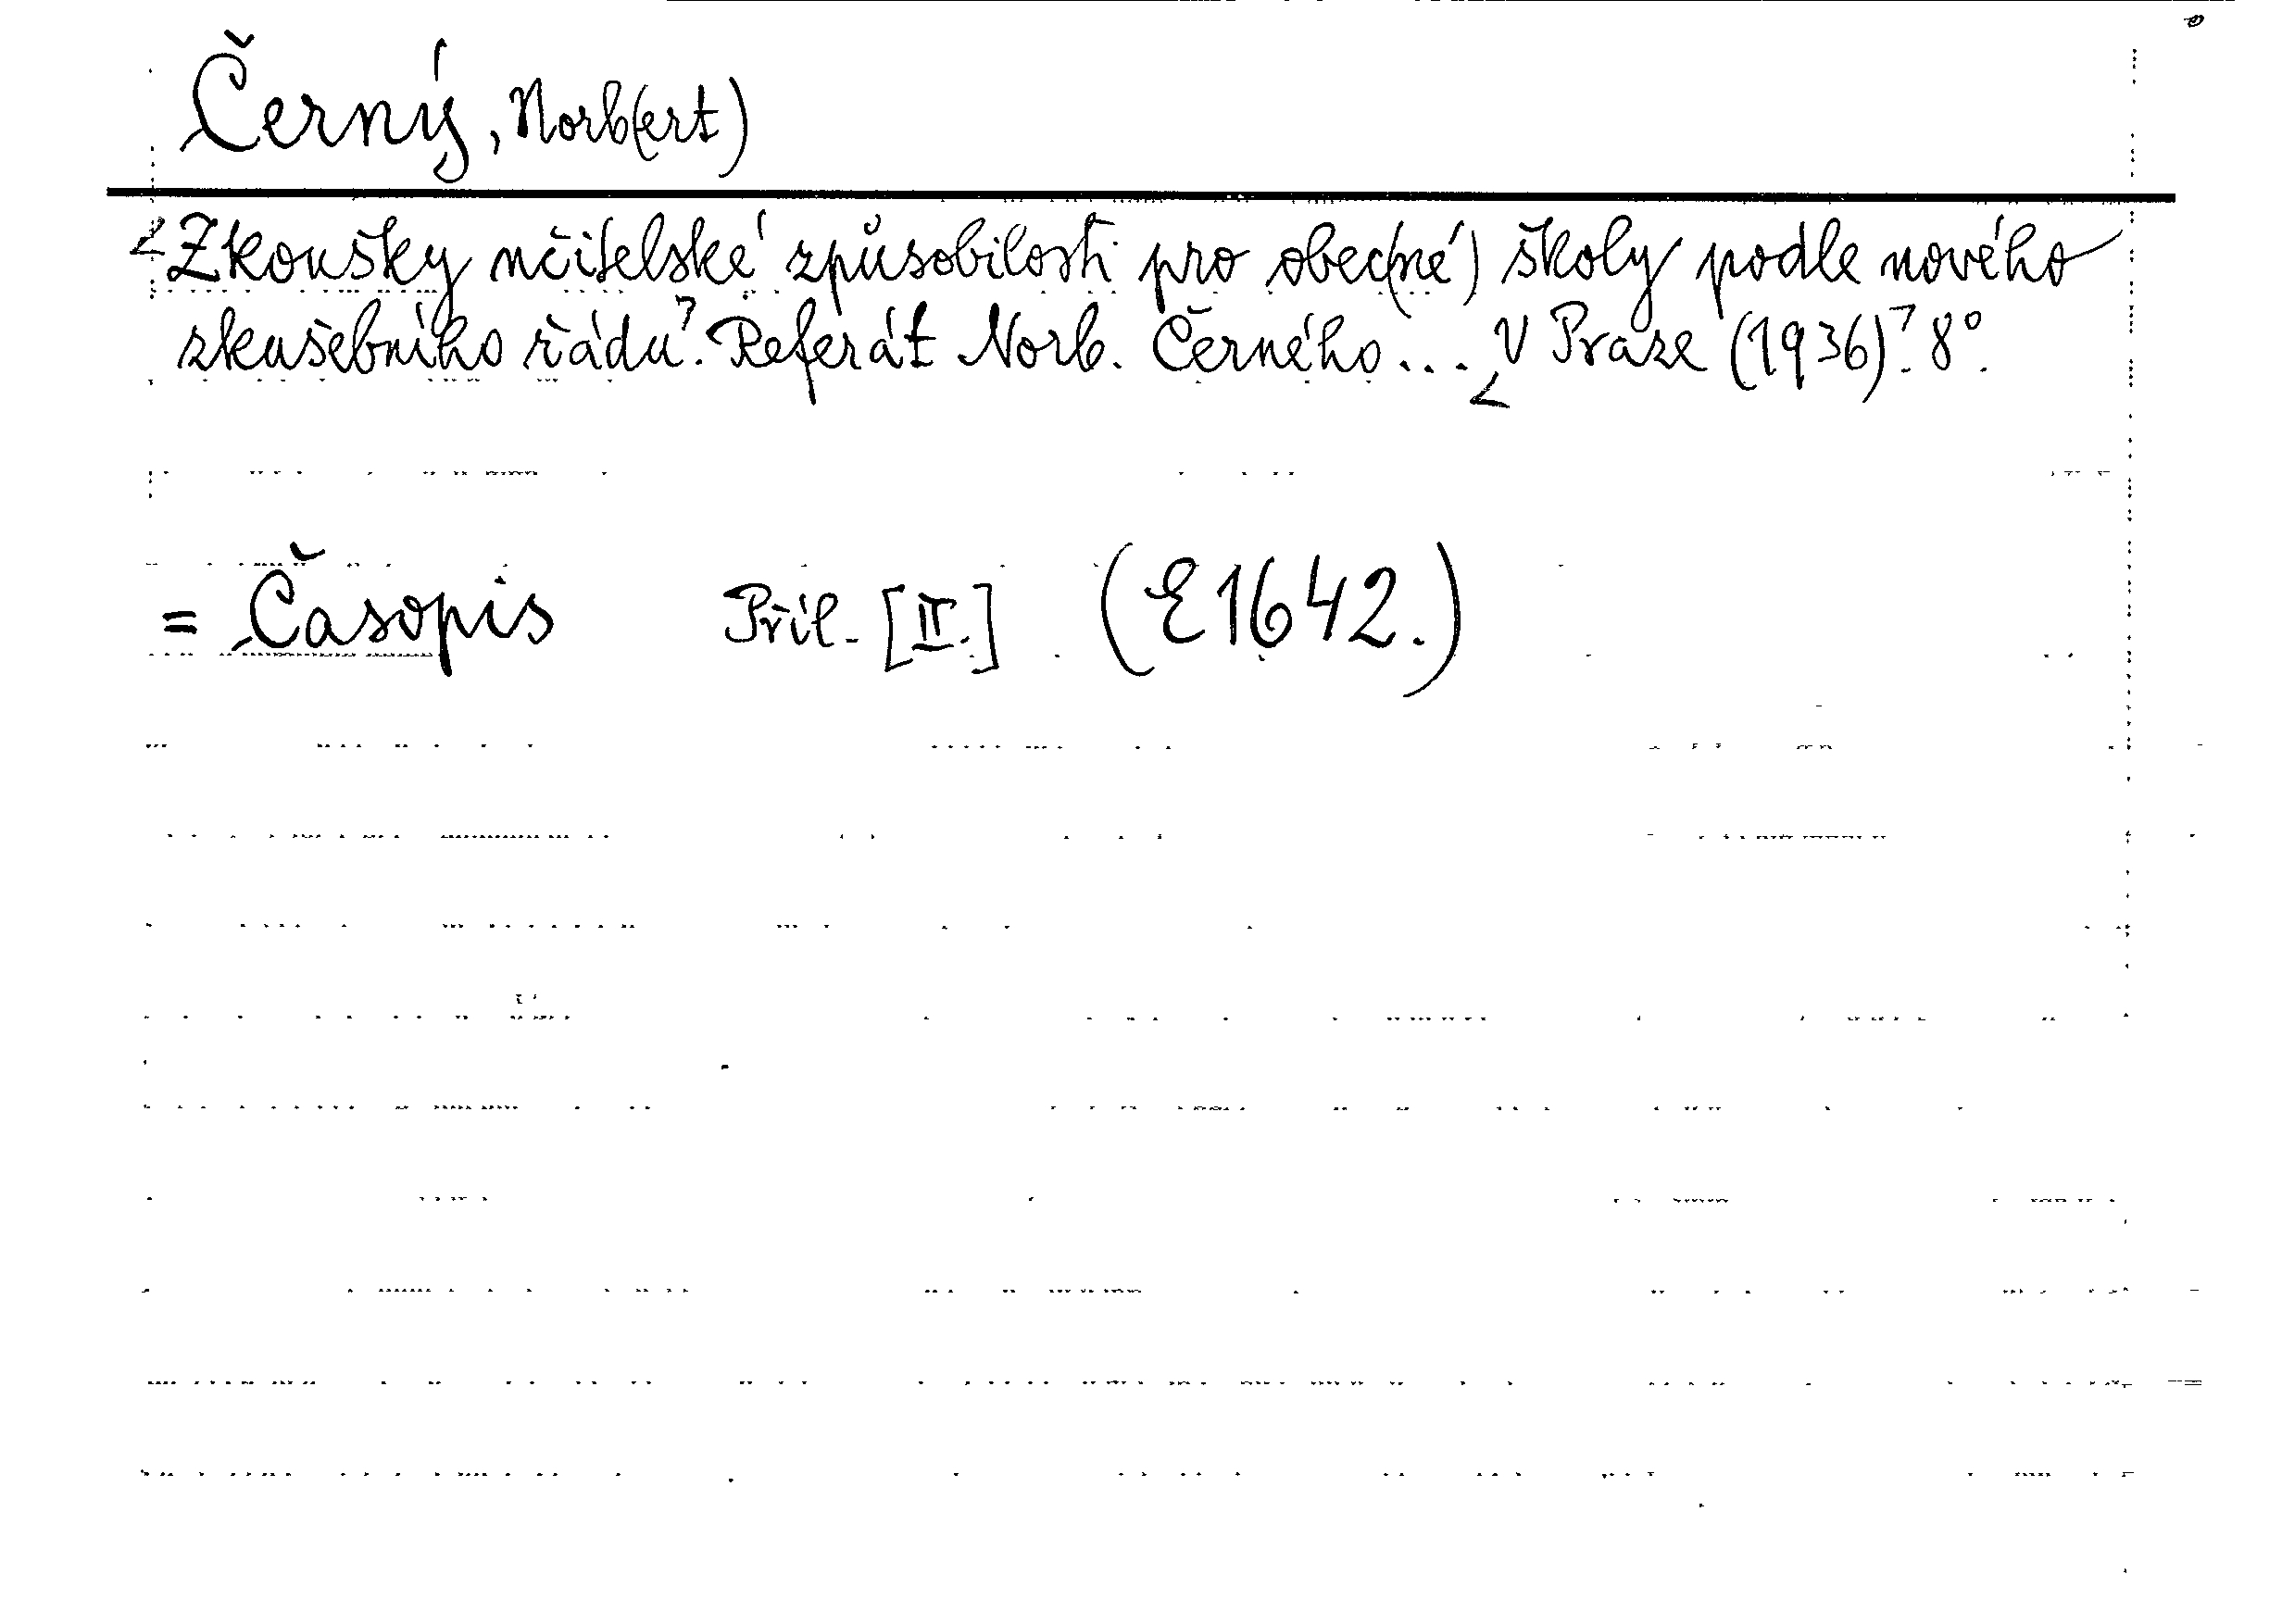 Černý, Norb(ert)
<Zkoušky učitelské způsobilosti pro obec(né) školy podle nového
zkušebního řádu>. Referát Norb. Černého... <V Praze (1936)>. 8°.
= Časopis Příl. [II.] (E1642.)